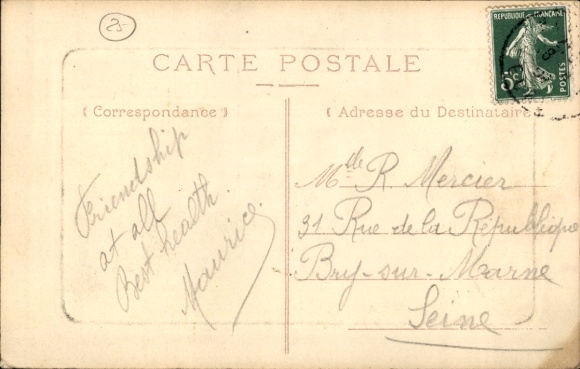 25
REPUBLIQUE FRANÇAISE
5c
POSTES
CARTE POSTALE
(Correspondance)
(Adresse du Destinataire)
Friendship
at all
Best health.
Maurice.
Mde R. Mercier
31 Rue de la République
Bry-sur-Marne
Seine